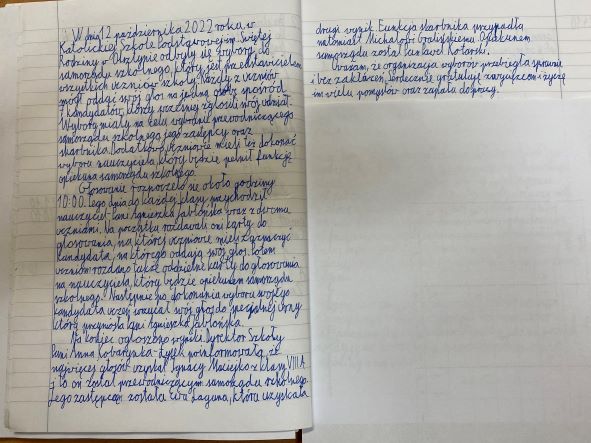 W dniu 12 października 2022 roku, w
Katolickiej Szkole Podstawowej im. Świętej
Rodziny w Olsztynie odbyły się wybory do
samorządu szkolnego, który jest przedstawicielem
wszystkich uczniów szkoły. Każdy z uczniów
mógł oddać swój głos na jedną osobę spośród
kandydatów, którzy wcześniej zgłosili swój udział.
Wybory miały na celu wybranie przewodniczącego
samorządu szkolnego, jego zastępcy oraz
skarbnika. Dodatkowo, uczniowie mieli też dokonać
wyboru nauczyciela, który będzie pełnił funkcję
opiekuna samorządu szkolnego.
Głosowanie rozpoczęło się około godziny
10:00. Tego dnia do każdej klasy przychodził
nauczyciel - Pani Agnieszka Jabłońska wraz z dwoma
uczniami. Na początku rozdawali oni karty do
głosowania, na której uczniowie mieli zaznaczyć
kandydata, na którego oddają swój głos. Potem
uczniom rozdano także oddzielne karty do głosowania
na nauczyciela, który będzie opiekunem samorządu
szkolnego. Następnie po dokonaniu wyboru swojego
kandydata uczeń wrzucał swój głos do specjalnej urny
którą przyniosła Pani Agnieszka Jabłońska.
Na koniec ogłoszono wyniki. Dyrektor Szkoły
Pani Anna poinformowała, że
najwięcej głosów uzyskał Ignacy Maciejko z klasy VIII A
i to on został przewodniczącym samorządu szkolnego.
Jego zastępcą została Ewa Laguna, która uzyskała
drugi wynik. Funkcja skarbnika przypadła
natomiast Michałowi Opiekunem
samorządu został Pan Paweł Kotarski.
Uważam, że organizacja wyborów przebiegła sprawnie
i bez zakłóceń. Serdecznie gratuluję zwycięzcom i życzę
im wielu pomysłów oraz zapału do pracy.